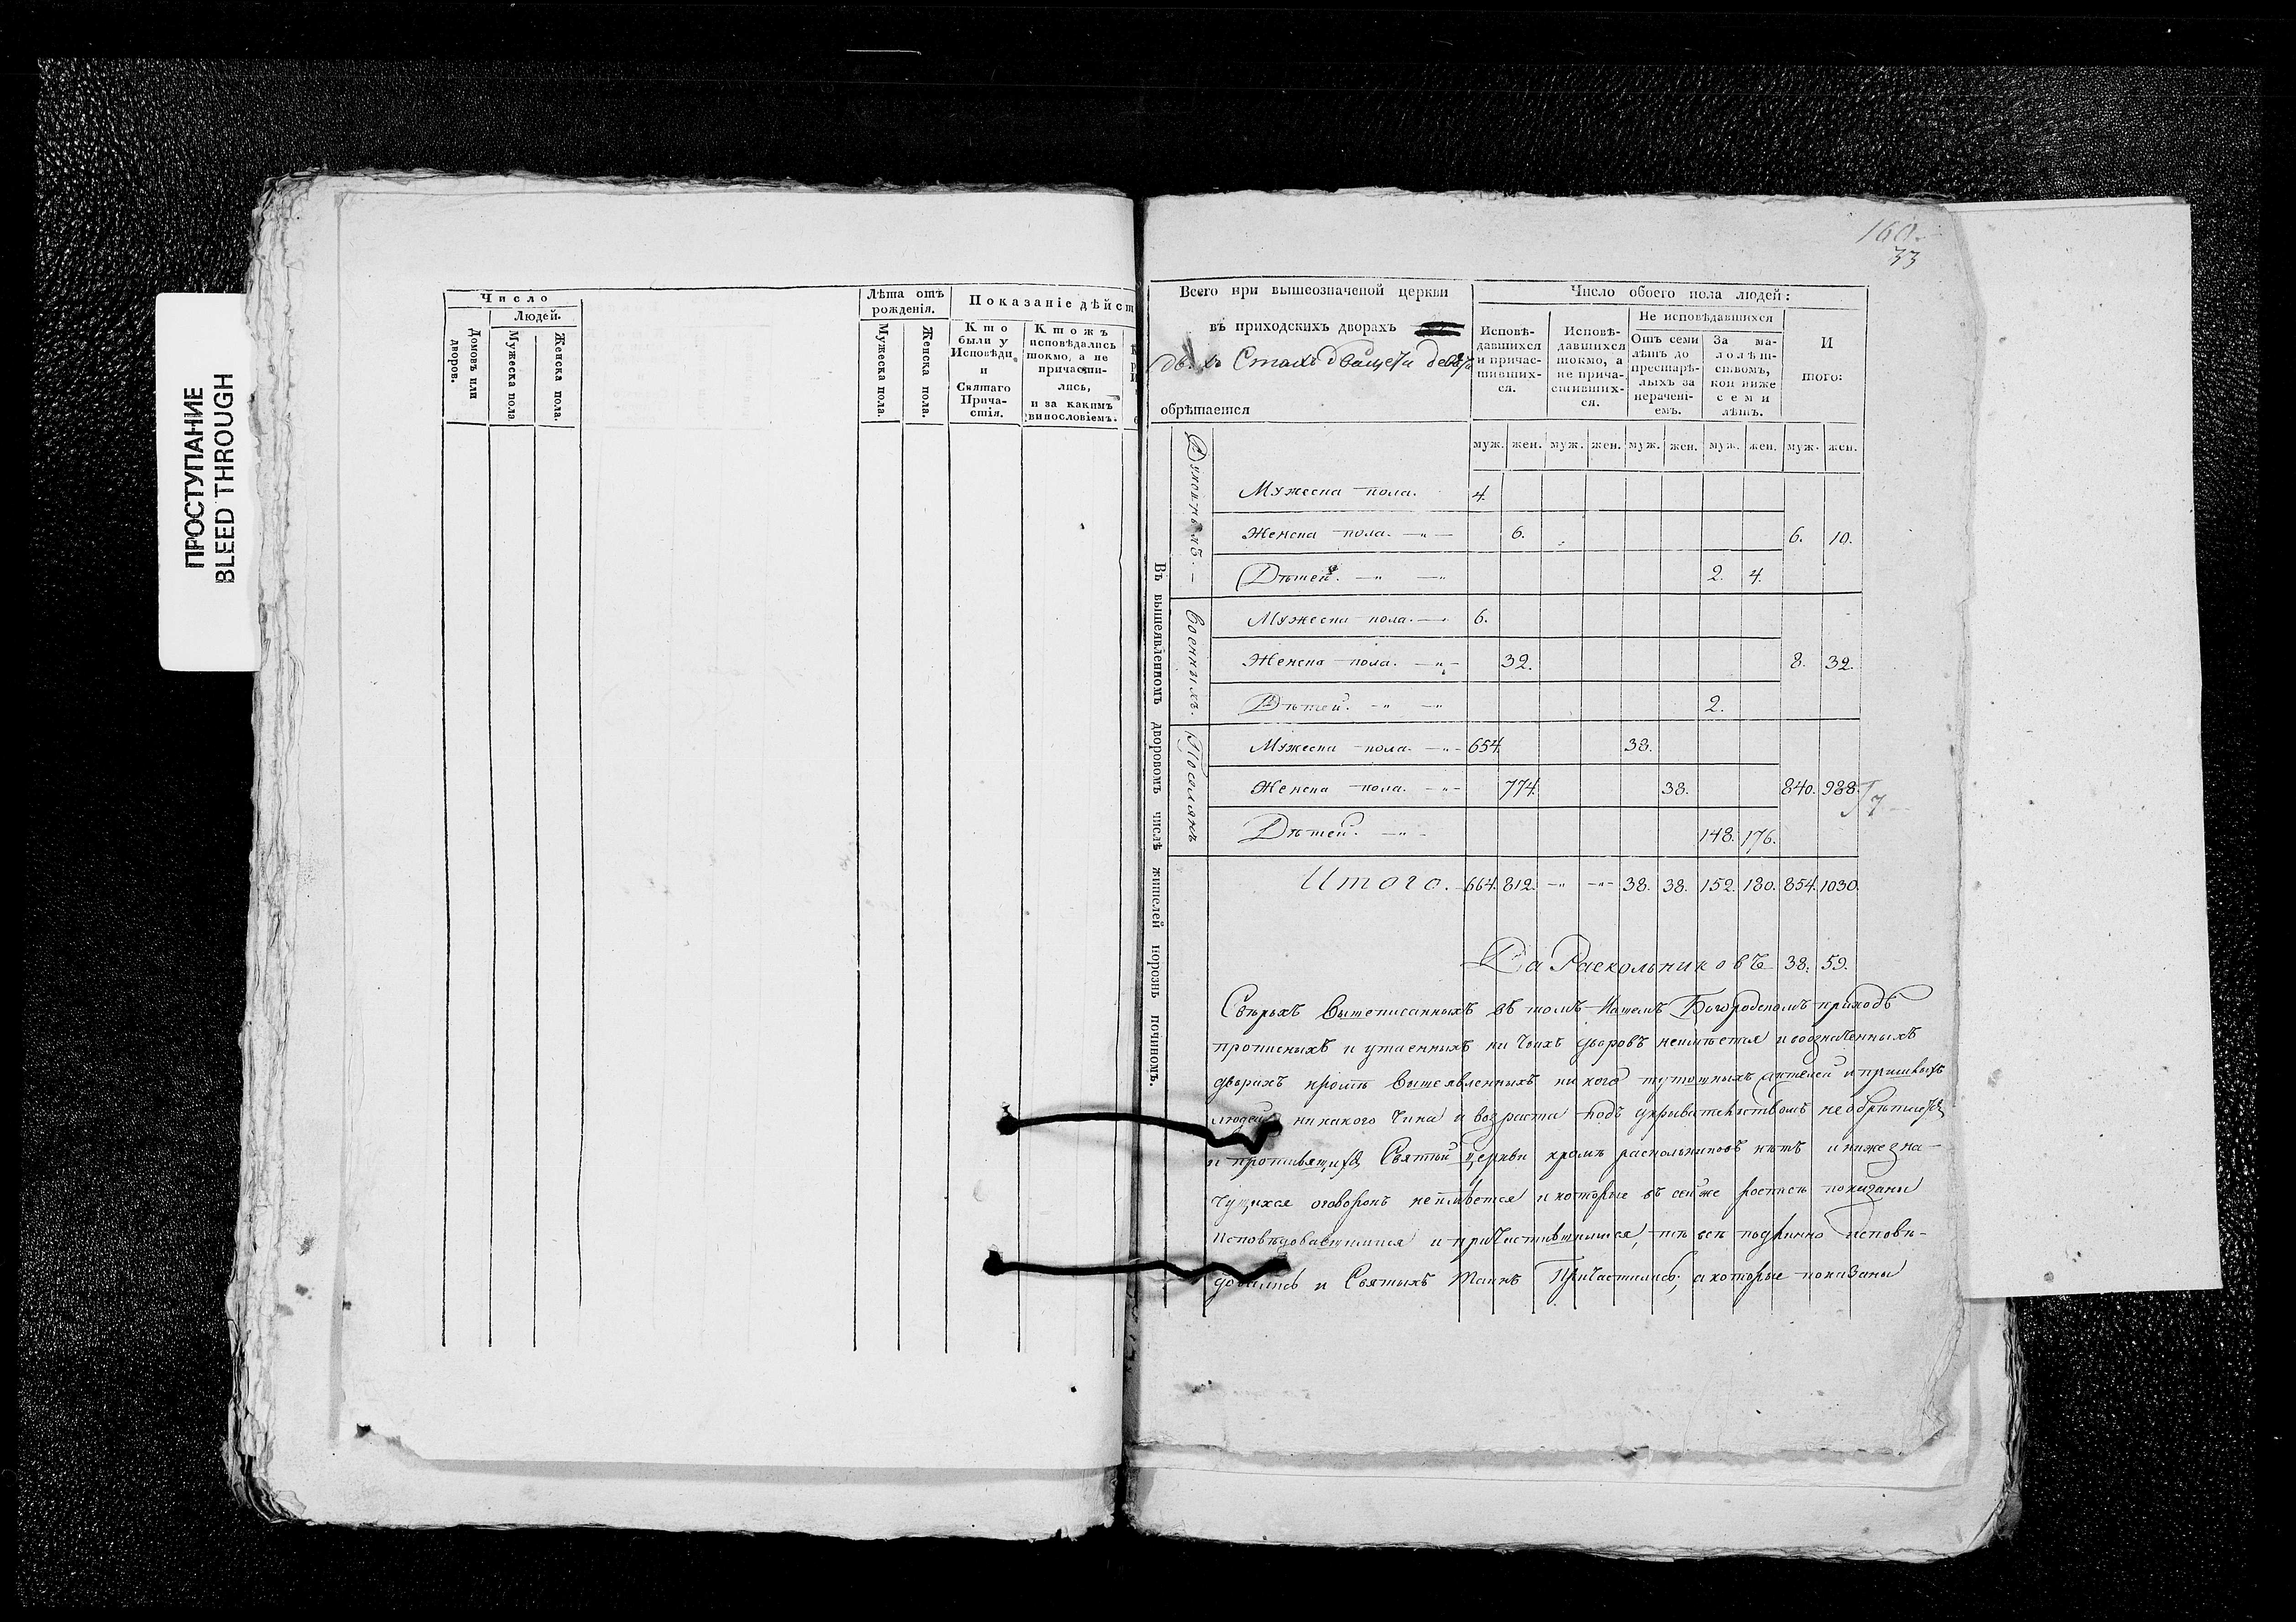 ПРОСТУПАНИЕ
BLEED THROUGH
Число
Людей.
Домовъ или дворов.
Мужеска пола
Женска пола.
Лѣта отъ рожденія.
Мужеска пола.
Женска пола.
Показаніе дѣйст
Кто были у Исповѣди и Святаго Причастія.
Ктожъ исповѣдались токмо, а не причастились, и за какимъ винословіемъ.
160.
33
Всего при вышеозначеной церкви
въ приходскихъ дворахъ
Двухъ Стахъ двацети девети
обрѣтается
Число обоего пола людей:
Исповѣдавшихся и причастившихся.
Исповѣдавшихся токмо, а не причастившихся.
Не исповѣдавшихся
Отъ семи лѣтъ до престарѣлыхъ за нераченіемъ.
За малолѣтствомъ, кои ниже семи лѣтъ.
И того:
муж. жен. муж. жен. муж. жен. муж. жен. муж. жен.
Въ вышеявленномъ дворовомъ числѣ жителей порознь починомъ.
Духовныхъ. —
Мужеска пола. 4.
Женска пола. —"— 6. 6. 10.
Дѣтей. —"— —"— 2. 4.
Военныхъ.
Мужеска пола. —"— 6.
Женска пола. —"— 32. 8. 32.
Дѣтей. —"— —"— 2.
Поселянъ
Мужеска пола. —"— 654. 38.
Женска пола. —"— 774. 38. 840. 988.
Дѣтей. —"— 148. 176.
Итого. 664. 812. —"— —"— 38. 38. 152. 180. 854. 1030.
Да Раскольниковъ 38. 59.
Сверхъ вышеписанныхъ въ томъ Нашемъ Богородскомъ приходѣ
прописныхъ и утаенныхъ ни чьихъ дворовъ неимѣется и возначенныхъ
дворахъ кромѣ вышеявленныхъ ни кого тутошныхъ жителей и пришлыхъ
людей никакого чина и возраста подъ укрывательствомъ не обрѣтается
и противящихся Святѣй церкви кромѣ раскольниковъ нѣтъ и нижезна-
чущихся оговоронъ неимѣется и которые въ сейже росписи показаны
исповѣдовавшимися и причастившимися, тѣ всѣ подлинно исповѣ-
довались и Святыхъ Таинъ Причастились; а которые показаны